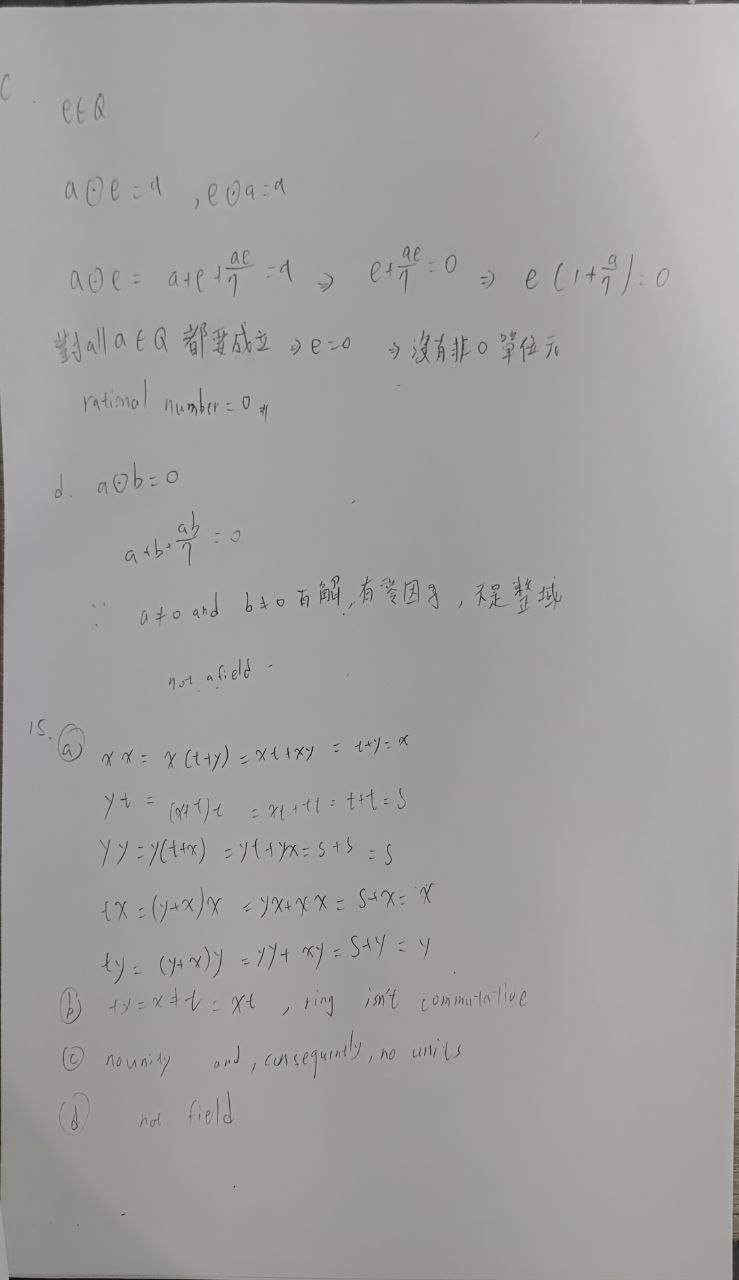 C.
e∈Q
a⊙e=a , e⊙a=a
a⊙e = a+e+ae/7 = a ⇒ e+ae/7=0 ⇒ e(1+a/7)=0
對all a∈Q 都要成立 ⇒ e=0 ⇒ 沒有非0單位元
rational number=0
d. a⊙b=0
a+b+ab/7=0
∵ a≠0 and b≠0 有解, 有零因子, 不是整域
not a field.
15.
(a) xx = x(t+y) = xt+xy = t+y=x
yt = (x+t)t = xt+tt = t+t = s
yy = y(t+x) = yt+yx = s+s = s
tx = (y+x)x = yx+xx = s+x = x
ty = (y+x)y = yy+xy = s+y = y
(b) tx=x≠t=xt , ring isn't commutative
(c) no unity and, consequently, no units
(d) not field